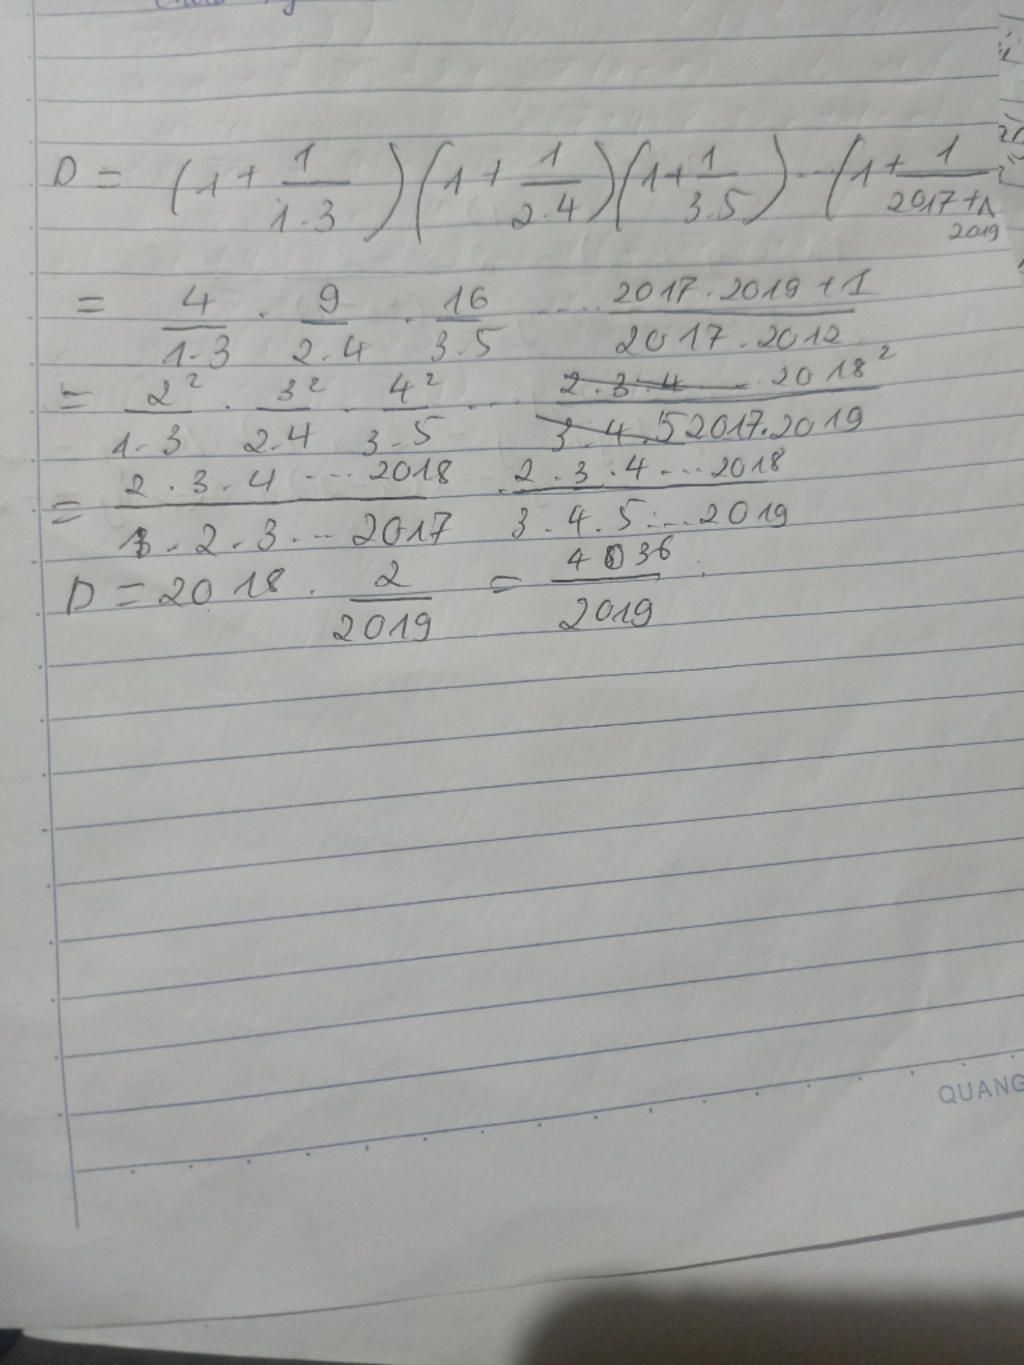 D = (1 + 1/1.3)(1 + 1/2.4)(1 + 1/3.5)...(1 + 1/2017+1 2019
= 4/1.3 . 9/2.4 . 16/3.5 .... 2017.2019+1/2017.2012
= 2²/1.3 . 3²/2.4 . 4²/3.5 ... 2018²/2017.2019
= 2.3.4...2018/1.2.3...2017 . 2.3.4...2018/3.4.5...2019
D = 2018 . 2/2019 = 4036/2019
QUANG